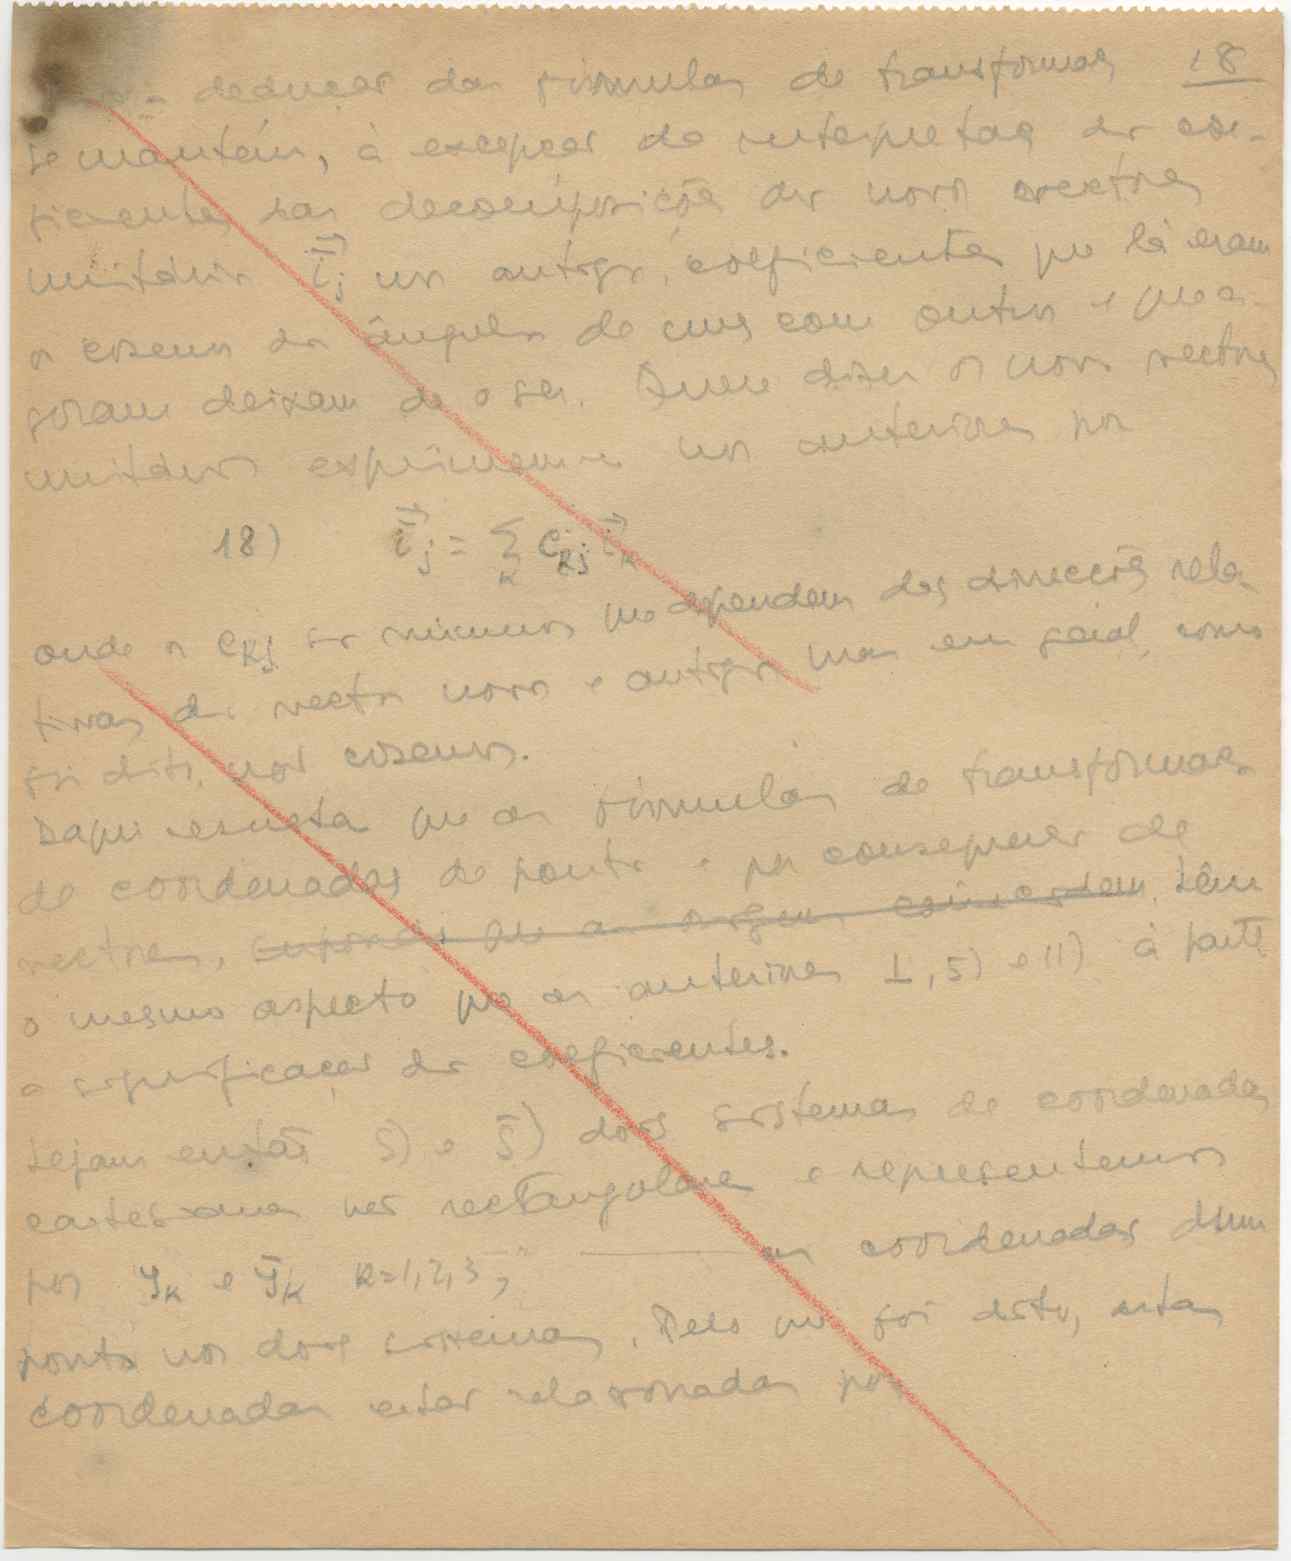 18
dedução das fórmulas de transformação
se mantém, à excepção da interpretação dos coe-
ficientes das decomposições dos novos vectores
unitários i̅⃗j nos antigos, coeficientes que lá eram
os cosenos dos ângulos de uns com outros e que a-
gora deixam de o ser. Quer dizer os novos vectores
unitários exprimem-se nos anteriores por
18) i̅⃗j = Σk Ckj i⃗k
onde os Ckj são números que dependem das direcções rela-
tivas dos vectores novos e antigos mas em geral, como
foi dito, não cosenos.
Daqui resulta que as fórmulas de transformação
de coordenadas de pontos e por consequência de
vectores, supondo que as origens coincidem, têm
o mesmo aspecto que as anteriores 1, 5) e 11) à parte
a significação dos coeficientes.
Sejam então S) e S̅) dois sistemas de coordenadas
cartesianas não rectangulares e representemos
por yk e y̅k k=1,2,3, as coordenadas dum
ponto nos dois sistemas. Pelo que foi dito, estas
coordenadas estão relacionadas por